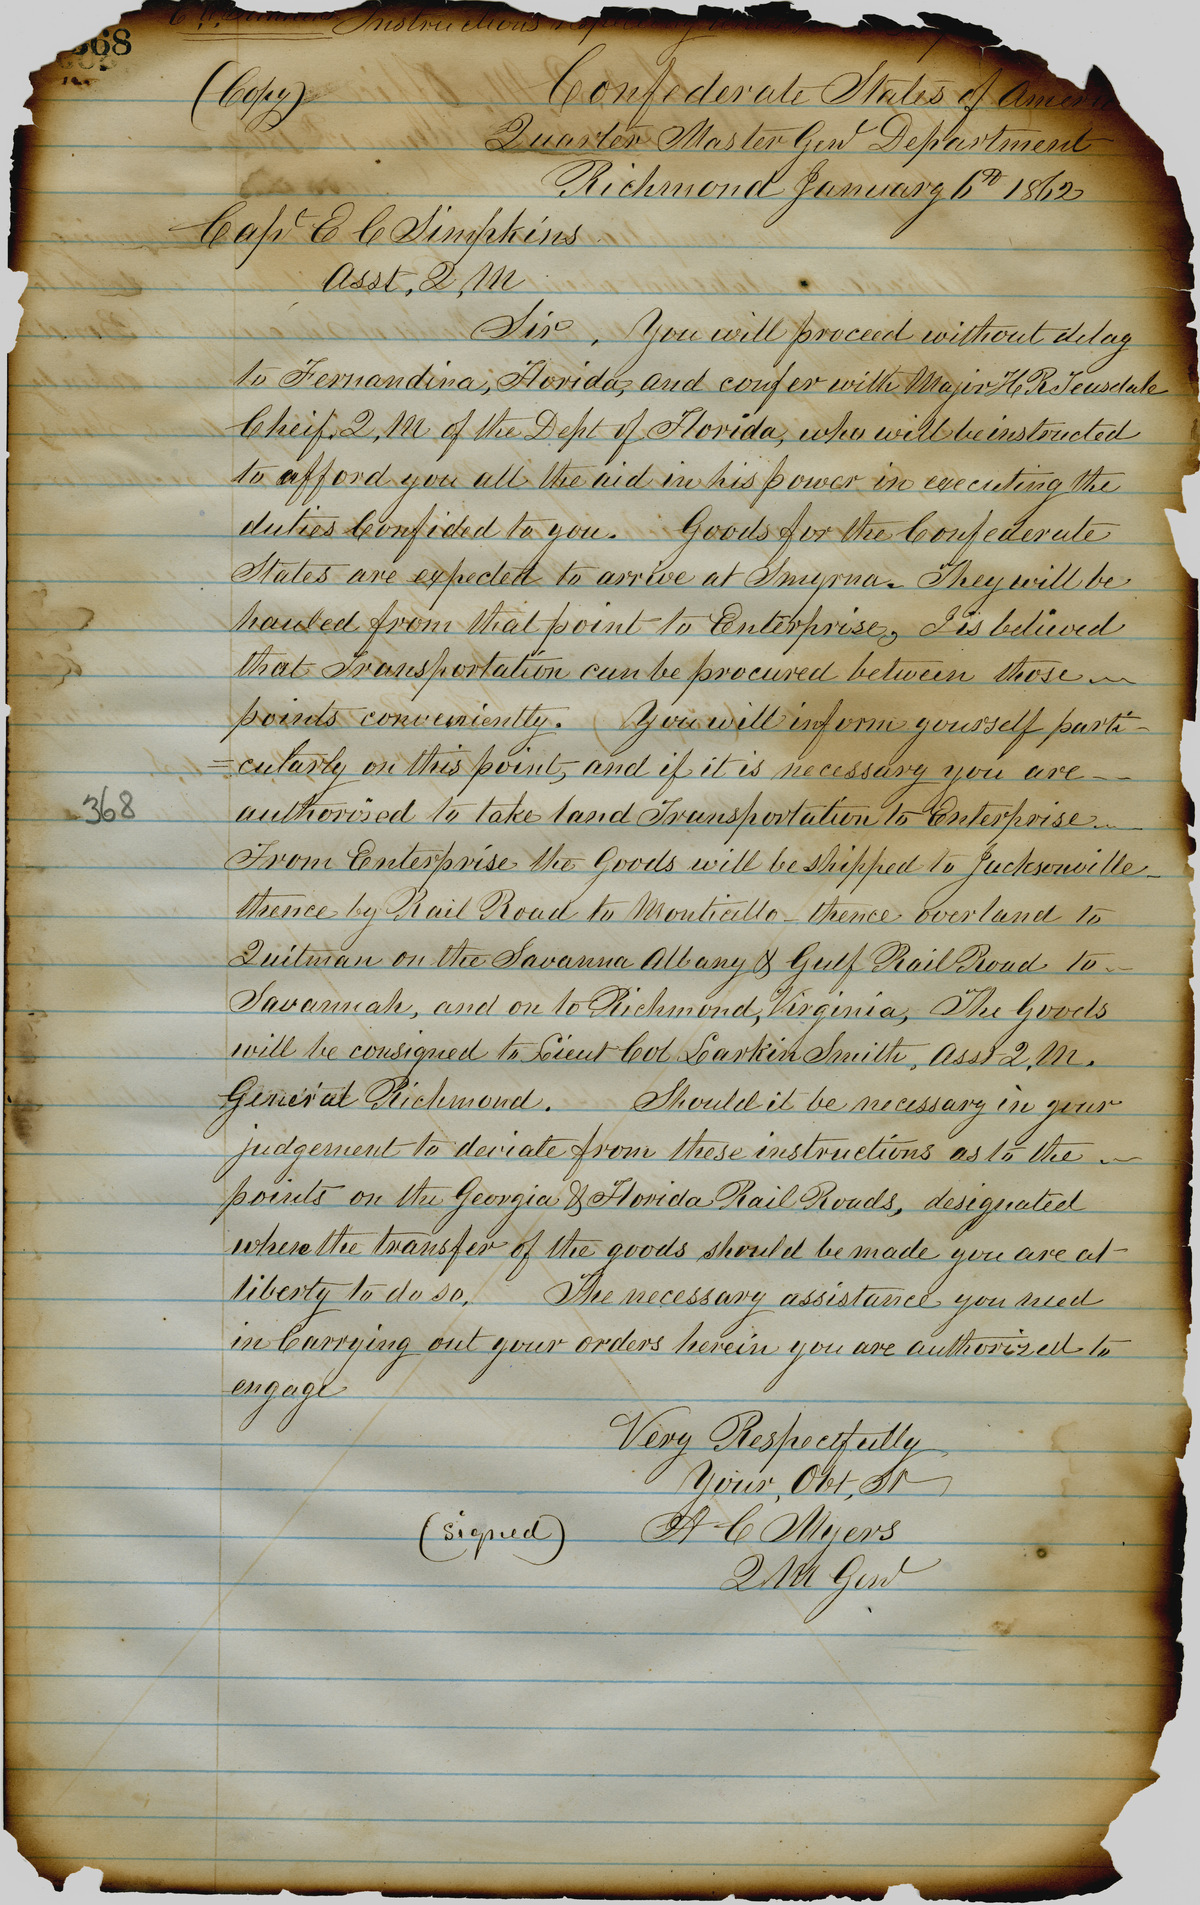 Instructions
368
(Copy) Confederate States of Ameri
Quarter Master Genl Department
Richmond January 6th 1862
Capt E C Simpkins
Asst. Q, M
Sir, You will proceed without delay
to Fernandina, Florida, and confer with Major H R Teasdale
Cheif. Q, M of the Dept of Florida, who will be instructed
to afford you all the aid in his power in executing the
duties Confided to you. Goods for the Confederate
States are expected to arrive at Smyrna. They will be
hauled from that point to Enterprise, I is believed
that Transportation can be procured between those
points conveniently. You will inform yourself parti-
=cularly on this point, and if it is necessary you are
368
authorised to take land Transportation to Enterprise
From Enterprise the Goods will be shipped to Jacksonville
thence by Rail Road to Monticello - thence overland to
Quitman on the Savanna Albany & Gulf Rail Road to
Savannah, and on to Richmond, Virginia, The Goods
will be consigned to Lieut Col Larkin Smith, Asst Q. M.
General Richmond. Should it be necessary in your
judgement to deviate from these instructions as to the
points on the Georgia & Florida Rail Roads, designated
where the transfer of the goods should be made you are at
liberty to do so. The necessary assistance you need
in Carrying out your orders herein you are authorized to
engage
Very Respectfully
Your, Obt, St
(signed) A C Myers
Q M Genl